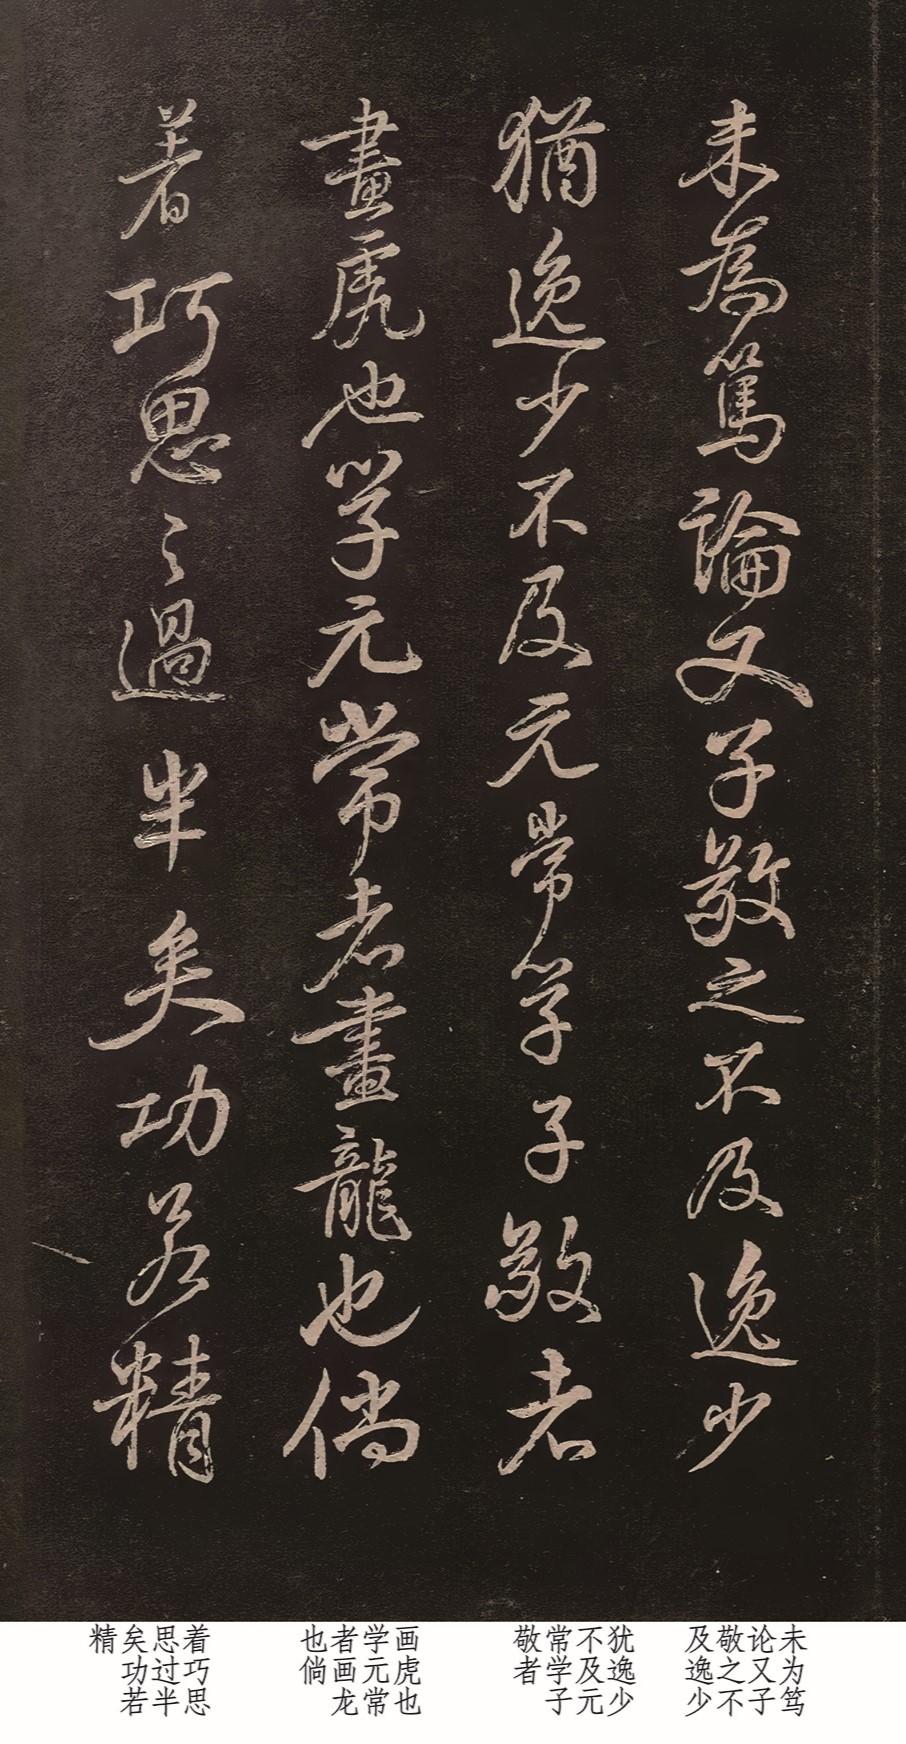 未為篤論又子敬之不及逸少
猶逸少不及元常学子敬者
畫虎也学元常者畫龍也倘
著巧思〻過半矣功若精
未为笃
论又子
敬之不
及逸少
犹逸少
不及元
常学子
敬者
画虎也
学元常
者画龙
也倘
着巧思
思过半
矣功若
精